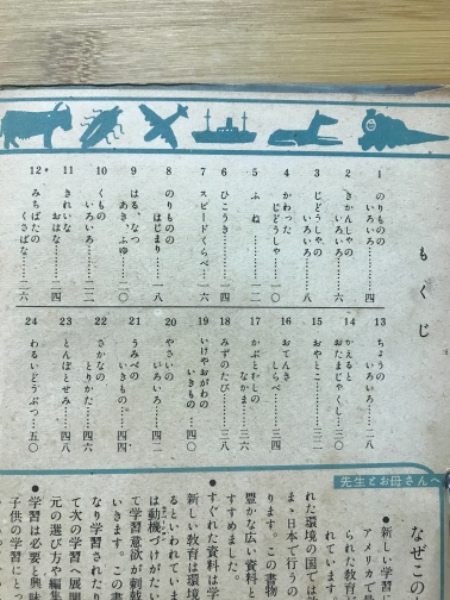 もくじ
1 のりものの
いろいろ………四
2 きかんしゃの
いろいろ………六
3 じどうしゃの
いろいろ………八
4 かわった
じどうしゃ……一〇
5 ふね…………一二
6 ひこうき………一四
7 スピードくらべ…一六
8 のりものの
はじまり………一八
9 はる、なつ
あき、ふゆ……二〇
10 くもの
いろいろ………二二
11 きれいな
おはな…………二四
12 みちばたの
くさばな………二六
13 ちょうの
いろいろ………二八
14 かえると
おたまじゃくし…三〇
15 おやとこ………三二
16 おてんき
しらべ…………三四
17 かぶとむしの
なかま…………三六
18 みずのたび……三八
19 いけやおがわの
いきもの………四〇
20 やさいの
いろいろ………四二
21 うみべの
いきもの………四四
22 さかなの
とりかた………四六
23 とんぼとせみ…四八
24 わるいどうぶつ…五〇
先生とお母さんへ
なぜこの
●新しい学習に
アメリカで
られた教育
れています
れた環境の国では
まゝ日本で行うの
ります。この書物
豊かな広い資料と
すすめました。
●すぐれた資料は学
新しい教育は環境
るといわれていま
は動機づけがたい
て学習意欲が刺戟
いきます。この書
なり学習されたり
て次の学習へ展開
元の選び方や編集
●学習は必要と興味
子供の学習にとっ